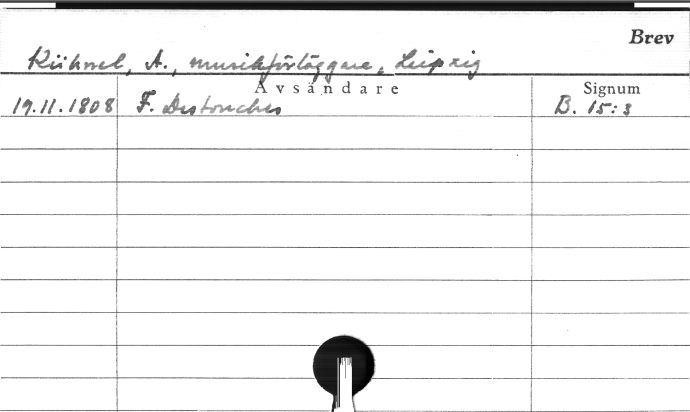 Brev
Kühnel, A., musikförläggare, Leipzig
Avsändare Signum
19.11.1808 F. Destouches B. 15:3